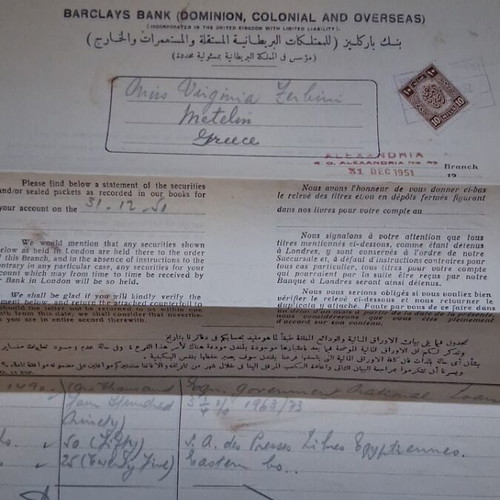 BARCLAYS BANK (DOMINION, COLONIAL AND OVERSEAS)
(INCORPORATED IN THE UNITED KINGDOM WITH LIMITED LIABILITY)
بنك باركليز (للممتلكات البريطانية المستقلة والمستعمرات والخارج)
(مؤسس في المملكة البريطانية بمسئولية محدودة)
Miss Virginia Zerbini
Metelin
Greece
10 MILLS 10
ALEXANDRIA
31 DEC 1951
Branch
19
Please find below a statement of the securities
and/or sealed packets as recorded in our books for
your account on the 31.12.51
We would mention that any securities shown
below as held in London are held there to the order
of this Branch, and in the absence of instructions to the
contrary in any particular case, any securities for your
account which may from time to time be received by
Bank in London will be so held.
We shall be glad if you will kindly verify the
statement below, and return the attached counterfoil
should the latter not be returned to us within one
month from this date, we shall consider that
you are in entire accord therewith.
Nous avons l'honneur de vous donner ci-bas
le relevé des titres et/en en dépôts fermés figurant
dans nos livres pour votre compte au
Nous signalons à votre attention que tous
titres mentionnés ci-dessous, comme étant détenus
à Londres, y sont conservés à l'ordre de notre
Succursale et, à défaut d'instructions contraires pour
tous cas particulier, tous titres pour votre compte
qui pourraient par la suite être reçus par notre
Banque à Londres seront ainsi détenus.
Nous vous serions obligés si vous vouliez bien
vérifier le relevé ci-dessous et nous retourner le
duplicata y attaché. Faute par vous de ce faire dans
d'un mois à partir de la date du
nous considérerons que vous êtes pleinement
d'accord sur son contenu.
1490 One thousand Egn. Government National Loan
Four Hundred 3 1/4 % 1963/73
Ninety
50 (Fifty) S. A. des Presses Libres Egyptiennes.
25 (Twenty Five) Eastern Co...